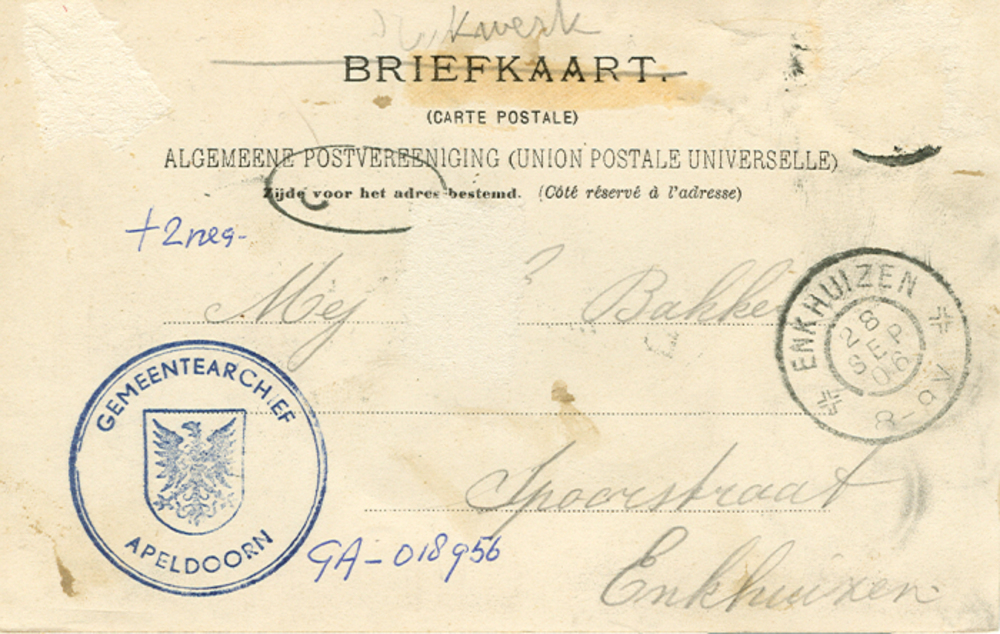 kwerk
BRIEFKAART.
(CARTE POSTALE)
ALGEMEENE POSTVEREENIGING (UNION POSTALE UNIVERSELLE)
Zijde voor het adres bestemd. (Côté réservé à l'adresse)
+2neg-
Mej Bakke
ENKHUIZEN
28 SEP 06
8-9V
GEMEENTEARCHIEF
APELDOORN
Spoorstraat
GA-018956
Enkhuizen.